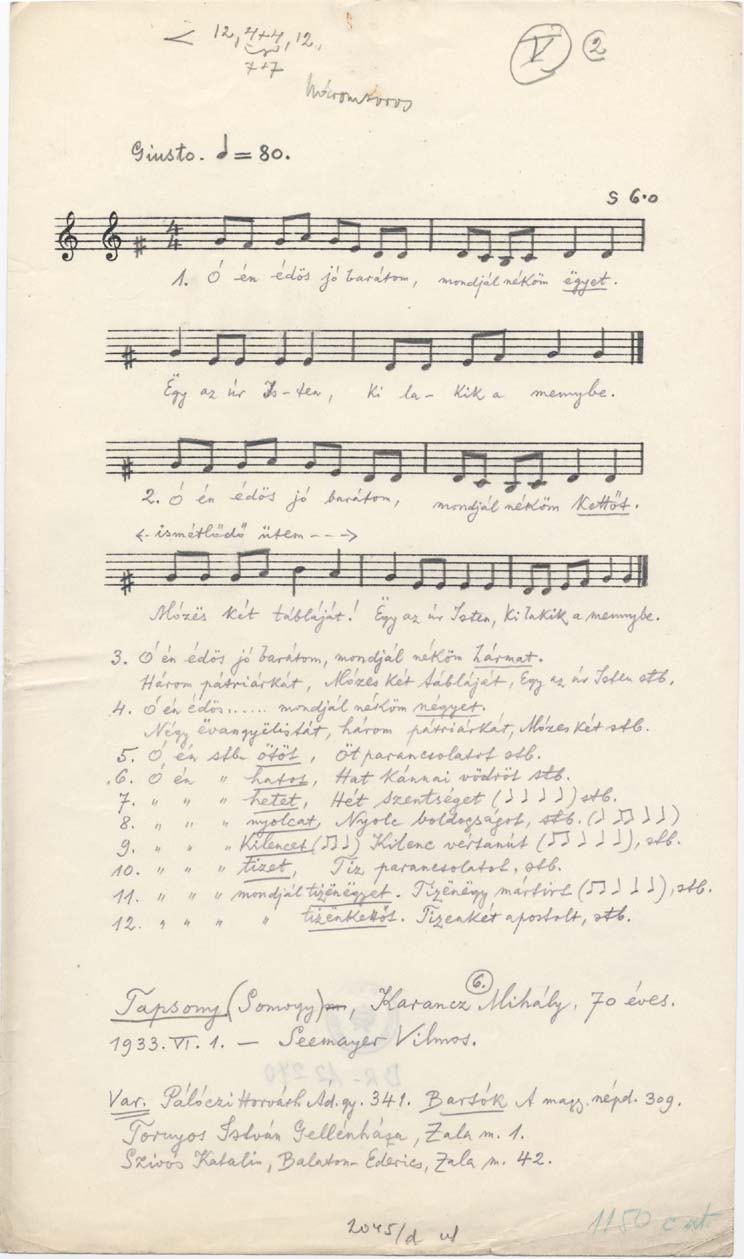 < 12, 4+4, 12,
7+7
V 2
Háromsoros
Giusto. = 80.
S 6·0
4
4
1. Ó én édös jó barátom, mondjál néköm ëgyet.
Ëgy az úr Is-ten, ki la-kik a mennybe.
2. Ó én édös jó barátom, mondjál néköm Kettőt.
<- ismétlődő ütem --->
Mózës két tábláját! Ëgy az úr Isten, ki lakik a mennybe.
3. Ó én édös jó barátom, mondjál néköm hármat.
Három pátriárkát, Mózes két tábláját, Ëgy az úr Isten stb.
4. Ó én édös...... mondjál néköm négyet.
Négy ëvangyélistát, három pátriárkát, Mózes két stb.
5. Ó én stb. ötöt, Öt parancsolatot stb.
6. Ó én " hatot, Hat Kánnai vödröt stb.
7. " " " hetet, Hét szentséget (♩ ♩ ♩ ♩) stb.
8. " " " nyolcat, Nyolc boldogságot, stb. (♩ ♫ ♩ ♩)
9. " " " Kilencet (♫ ♩) Kilenc vértanút (♫ ♩ ♩ ♩), stb.
10. " " " tizet, Tíz parancsolatot, stb.
11. " " " mondjál tizënëgyet. Tizënëgy mártírt (♫ ♩ ♩ ♩), stb.
12. " " " " tizënkettőt. Tizenkét apostolt, stb.
6.
Tapsony (Somogy), Karancz Mihály, 70 éves.
1933. VI. 1. — Seemayer Vilmos.
Var. Pálóczi Horváth Ád. gy. 341. Bartók A magy. népd. 309.
Tornyos István Gellénháza, Zala m. 1.
Szívós Katalin, Balaton-Ederics, Zala m. 42.
2045/d
1150